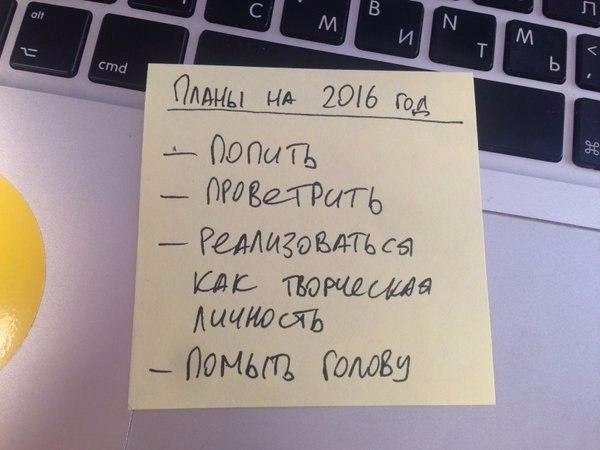 alt
cmd
C
M
В
И
N
Т
M
Ь
⌘
Планы на 2016 год
— Попить
— Проветрить
— Реализоваться
как творческая
личность
— Помыть голову